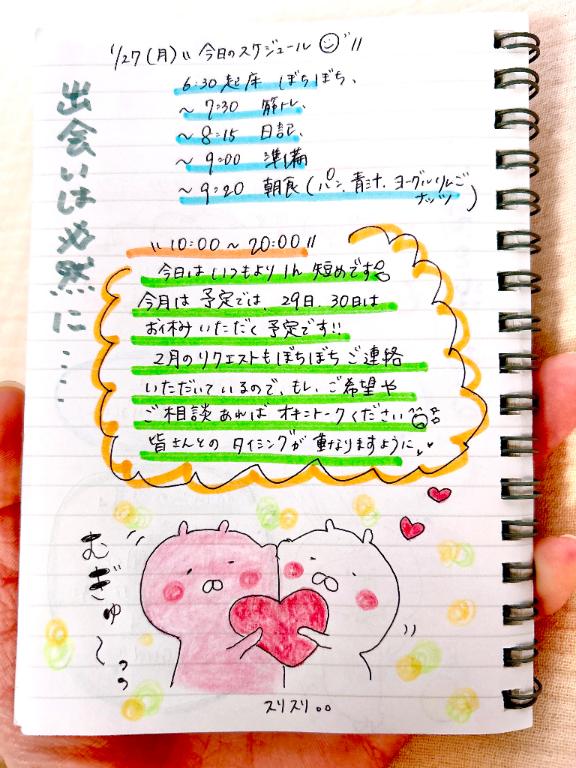 1/27(月) 〃今日のスケジュール〃
6:30 起床 ぼちぼち、
～7:30 筋トレ、
～8:15 日記、
～9:00 準備
～9:20 朝食(パン、青汁、ヨーグルりんご
ナッツ)
出会いは必然に....
〃10:00～20:00〃
今日はいつもより1h 短めです
今月は予定では、29日、30日は
お休みいただく予定です!!
2月のリクエストもぼちぼちご連絡
いただいているので、もし、ご希望や
ご相談あれば オキニトークください
皆さんとの タイミングが重なりますように、
むぎゅ～っっ
スリスリ。。